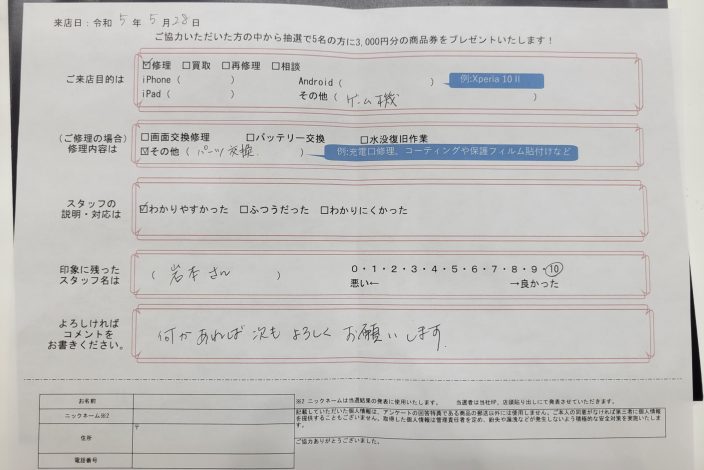 来店日：令和 5 年 5 月 28 日
ご協力いただいた方の中から抽選で5名の方に3,000円分の商品券をプレゼントいたします！
ご来店目的は
☑修理 □買取 □再修理 □相談
iPhone（　　　） Android（　　　） 例:Xperia 10 II
iPad（　　　） その他（ ゲーム機 ）
（ご修理の場合）
修理内容は
□画面交換修理 □バッテリー交換 □水没復旧作業
☑その他（ パーツ交換. ） 例:充電口修理、コーティングや保護フィルム貼付けなど
スタッフの
説明・対応は
☑わかりやすかった □ふつうだった □わかりにくかった
印象に残った
スタッフ名は
（ 岩本さん ）
0・1・2・3・4・5・6・7・8・9・10
悪い← →良かった
よろしければ
コメントを
お書きください。
何かあれば次もよろしくお願いします.
お名前
ニックネーム※2
住所
〒
電話番号
※2 ニックネームは当選結果の発表に使用いたします。 当選者は当社HP、店頭貼り出しにて発表させていただきます。
記載していただいた個人情報は、アンケートの回答特典である商品の郵送以外には使用しません。ご本人の同意がなければ第三者に個人情報
を提供することもございません。取得した個人情報は管理責任者を定め、紛失や漏洩などが発生しないよう積極的な安全対策を実施いたしま
す。
ご協力ありがとうございました。